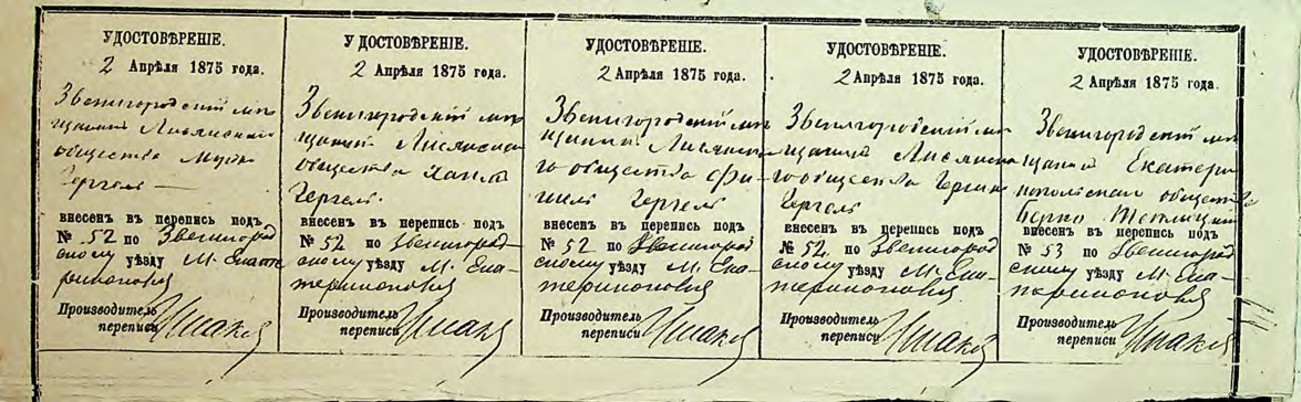 УДОСТОВѢРЕНІЕ.
2 Апрѣля 1875 года.
Звенигородскій мѣ-
щанинъ Лисянскаго
общества
Гергель
внесенъ въ перепись подъ
№ 52 по Звенигород-
скому уѣзду М. Екате-
ринополя
Производитель
переписи
УДОСТОВѢРЕНІЕ.
2 Апрѣля 1875 года.
Звенигородскій мѣ-
щанинъ Лисянска
общества
Гергель
внесенъ въ перепись подъ
№ 52 по Звенигород-
скому уѣзду М. Ека-
теринополя
Производитель
переписи
УДОСТОВѢРЕНІЕ.
2 Апрѣля 1875 года.
Звенигородскій мѣ
щанинъ Лисянска-
го общества Фи-
шель Гергель
внесенъ въ перепись подъ
№ 52 по Звенигород
скому уѣзду М. Ека-
теринополя
Производитель
переписи
УДОСТОВѢРЕНІЕ.
2 Апрѣля 1875 года.
Звенигородскій мѣ
щанинъ Лисянска
го общества
Гергель
внесенъ въ перепись подъ
№ 52 по Звенигород
скому уѣзду М. Ека-
теринополя
Производитель
переписи
УДОСТОВѢРЕНІЕ.
2 Апрѣля 1875 года.
Звенигородскій мѣ
щанинъ Екатери
нопольскаго общества
Берко Теплицкій
внесенъ въ перепись подъ
№ 53 по Звенигород
скому уѣзду М. Ека-
теринополя
Производитель
переписи